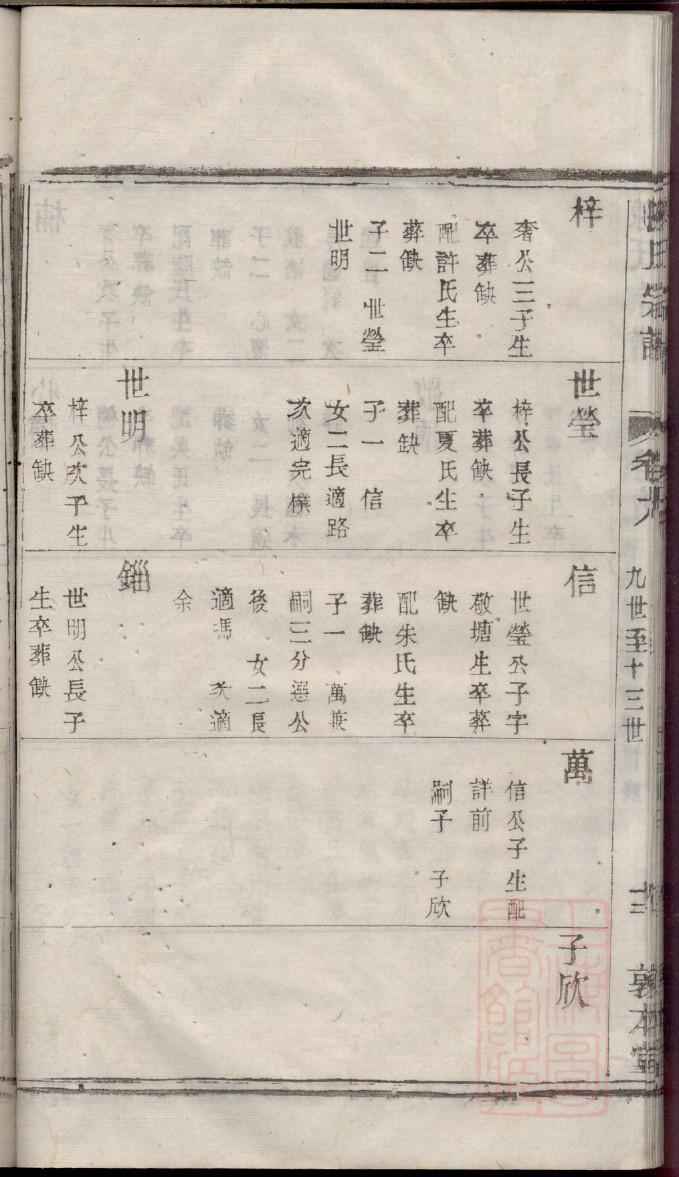 氏宗譜
卷九
九世至十三世
敦本堂
梓
奢公三子生
卒葬缺
配許氏生卒
葬缺
子二 世瑩
世明
世瑩
梓公長子生
卒葬缺
配夏氏生卒
葬缺
子一 信
女二長適路
次適完樸
世明
梓公次子生
卒葬缺
信
世瑩公子字
敬塘生卒葬
缺
配朱氏生卒
葬缺
子一 萬兼
嗣三分選公
後 女二長
適馮 次適
余
錙
世明公長子
生卒葬缺
萬
信公子生配
詳前
嗣子 子欣
子欣